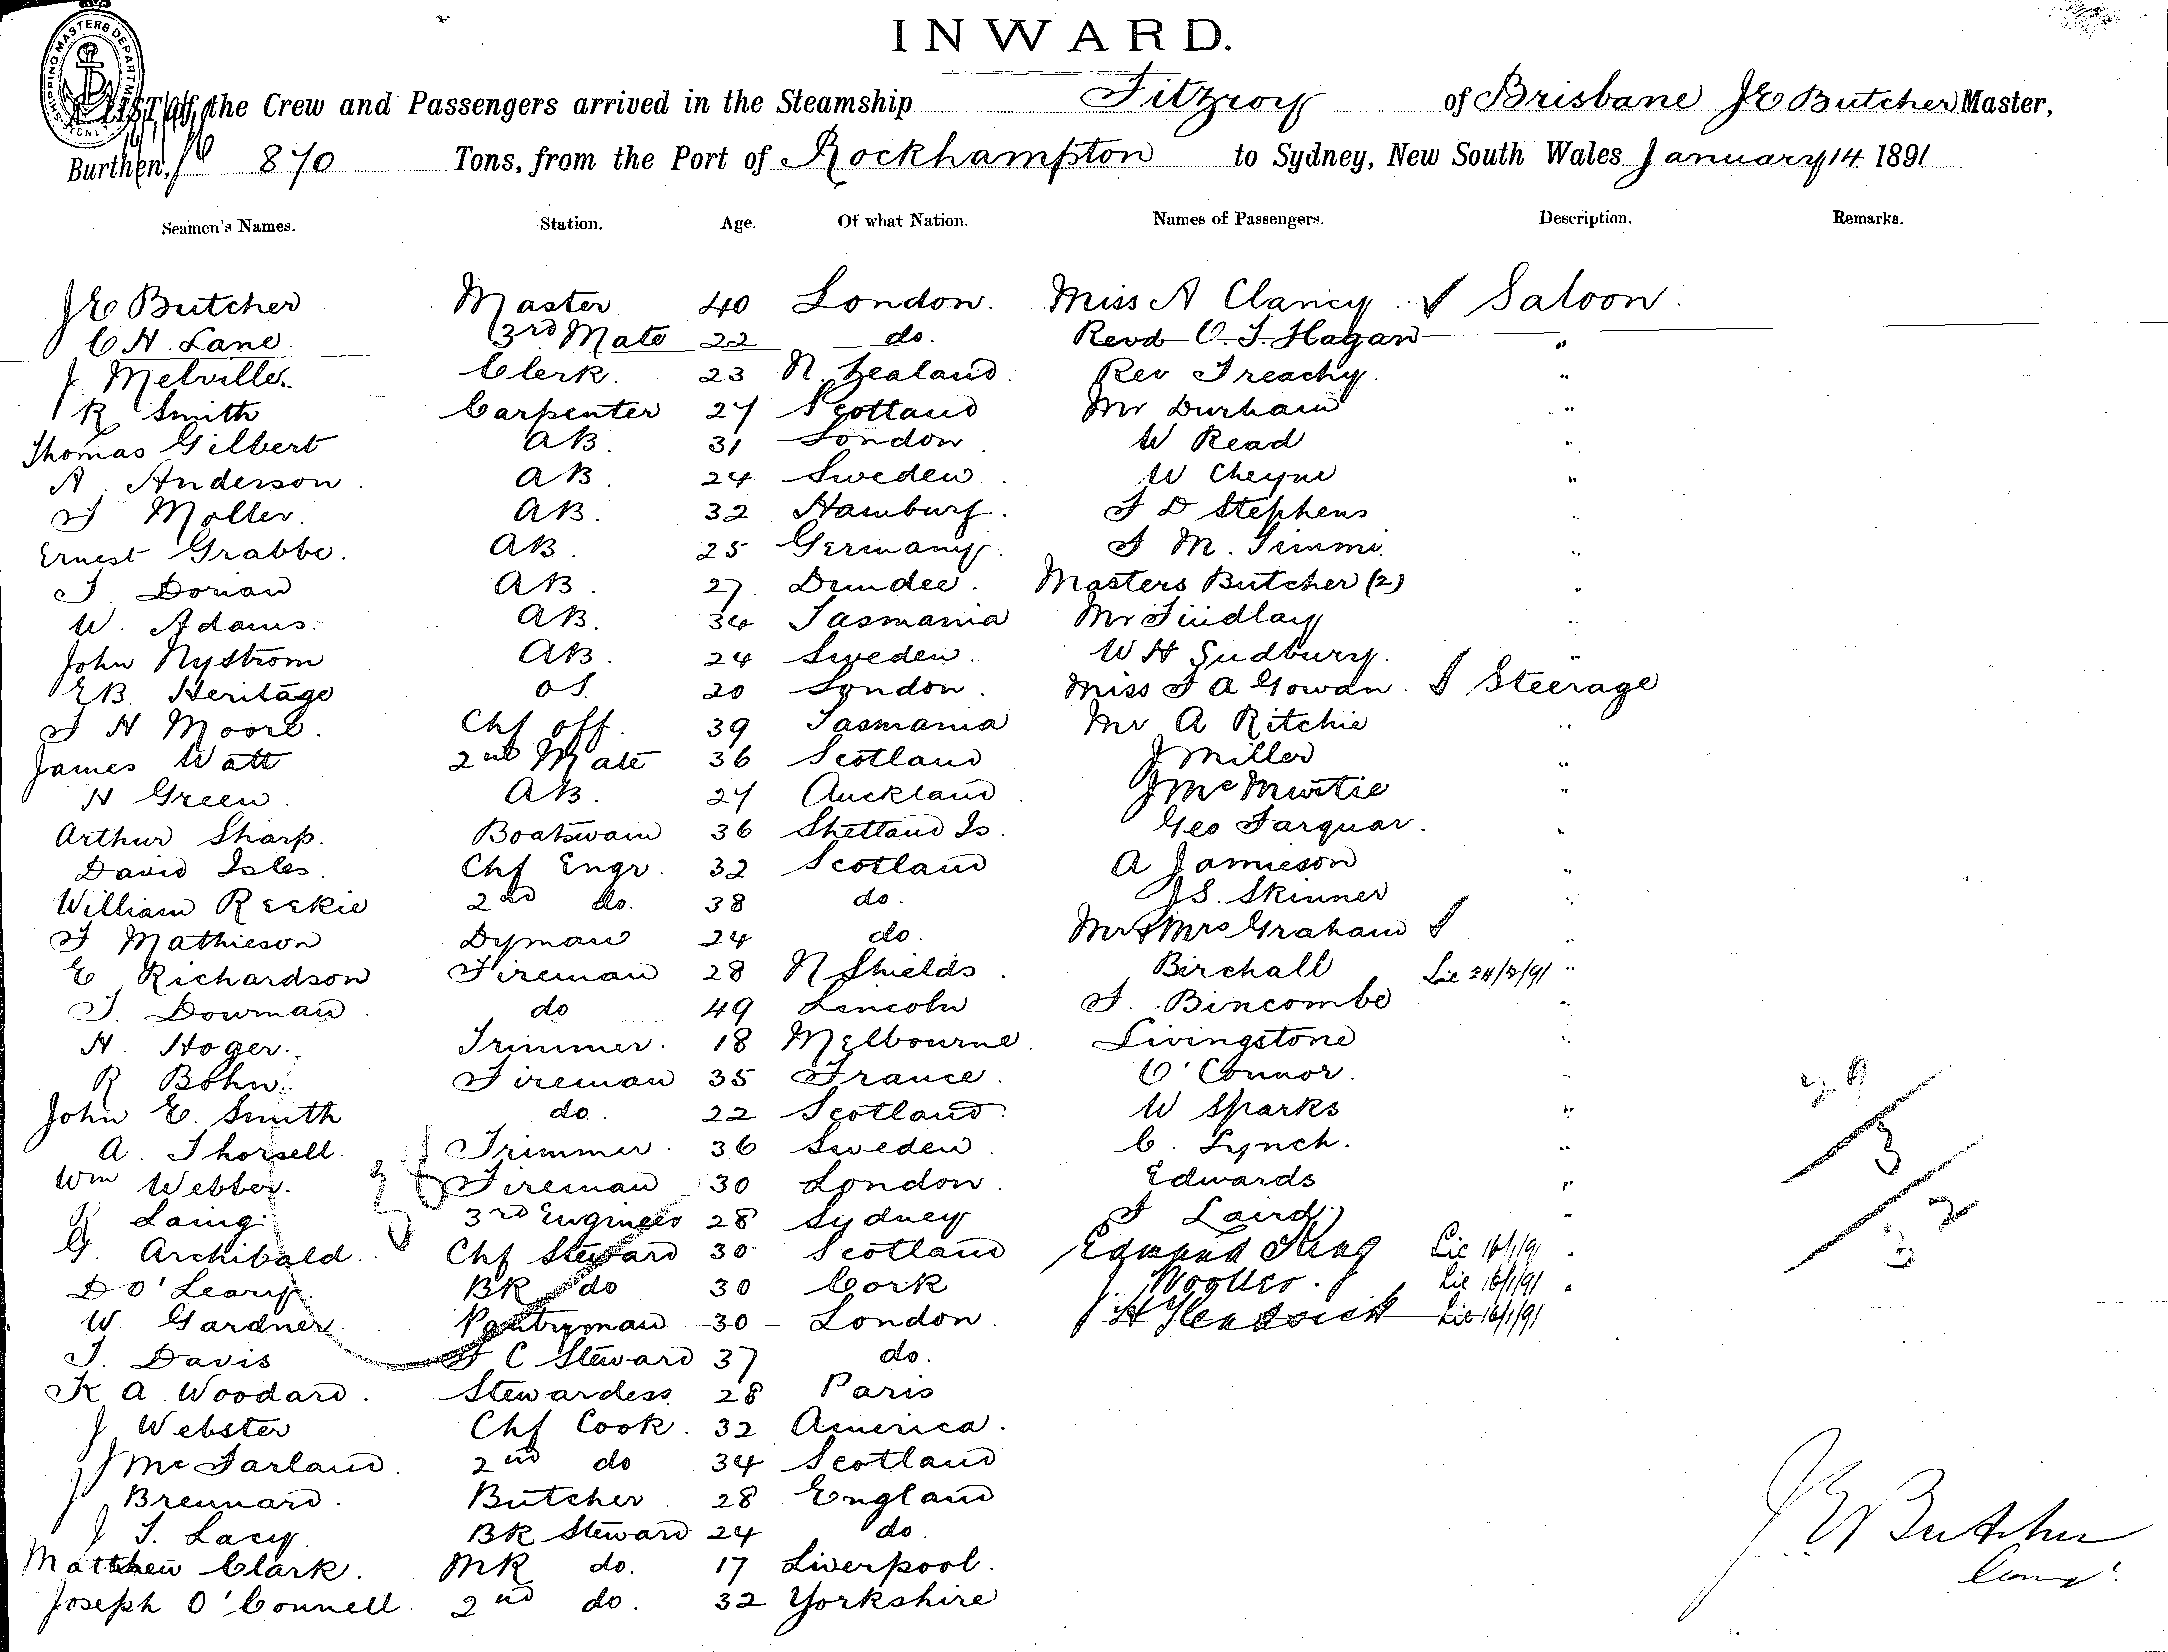 INWARD.
SHIPPING MASTERS DEPARTMENT
LIST of the Crew and Passengers arrived in the Steamship Fitzroy of Brisbane J E Butcher Master,
Burthen, 870 Tons, from the Port of Rockhampton to Sydney, New South Wales January 14 1891
Seamen's Names. Station. Age. Of what Nation. Names of Passengers. Description. Remarks.
J E Butcher Master 40 London. Miss A Clancy. Saloon.
C H. Lane 3rd Mate 22 do. Revd O. J. Hagan "
J. Melville. Clerk. 23 N. Zealand. Rev Treachy. "
R Smith Carpenter 27 Scotland Mr Durham "
Thomas Gilbert AB. 31 London W Read "
A. Anderson. AB. 24 Sweden W Cheyne "
Moller. AB. 32 Hamburg. J D Stephens "
Ernest Grabbe. AB. 25 Germany. "
J Doran AB. 27. Dundee. Masters Butcher (2) "
W. Adams. AB. 34 Tasmania Mr Findlay "
John Nystrom AB. 24 Sweden. W H Sudbury. "
E B. Heritage OS. 20 London. Miss J A Gowan. Steerage
H Moore. Chf off. 39 Tasmania Mr A Ritchie "
James Watt 2nd Mate 36 Scotland J Miller "
H Green. AB. 27 Auckland J McMurtie "
Arthur Sharp. Boatswain 36 Shetland Is. Geo Farquar. "
David Isles. Chf Engr. 32 Scotland A Jamieson "
William Reekie 2nd do. 38 do. J S. Skinner "
J Mathieson Dyman 24 do. Mr & Mrs Graham "
E Richardson Fireman 28 N Shields. Birchall Lic 24/3/91 "
J. Dowman do 49 Lincoln J. Bincombe "
H. Hoger. Trimmer. 18 Melbourne. Livingstone "
R Bohn. Fireman 35 France. O'Connor. "
John E. Smith do. 22 Scotland. W Sparks "
A. Thorsell. Trimmer. 36 Sweden. C. Lynch. "
Wm Webber. Fireman 30 London. Edwards "
Laing 3rd Engineer 28 Sydney J Laird "
G. Archibald. Chf Steward 30 Scotland Edmund King Lic 16/1/91 "
D O'Leary. BK do 30 Cork Lic 16/1/91 "
W. Gardner Pantryman 30 London. Lic 16/1/91
J. Davis F C Steward 37 do.
K A Woodard. Stewardess 28 Paris
J Webster Chf Cook. 32 America.
J McFarland. 2nd do 34 Scotland
J Brennard. Butcher 28 England
J T. Lacy. BK Steward 24 do
Matthew Clark. MR do. 17 Liverpool.
Joseph O'Connell 2nd do. 32 Yorkshire
29
3
32
J E Butcher